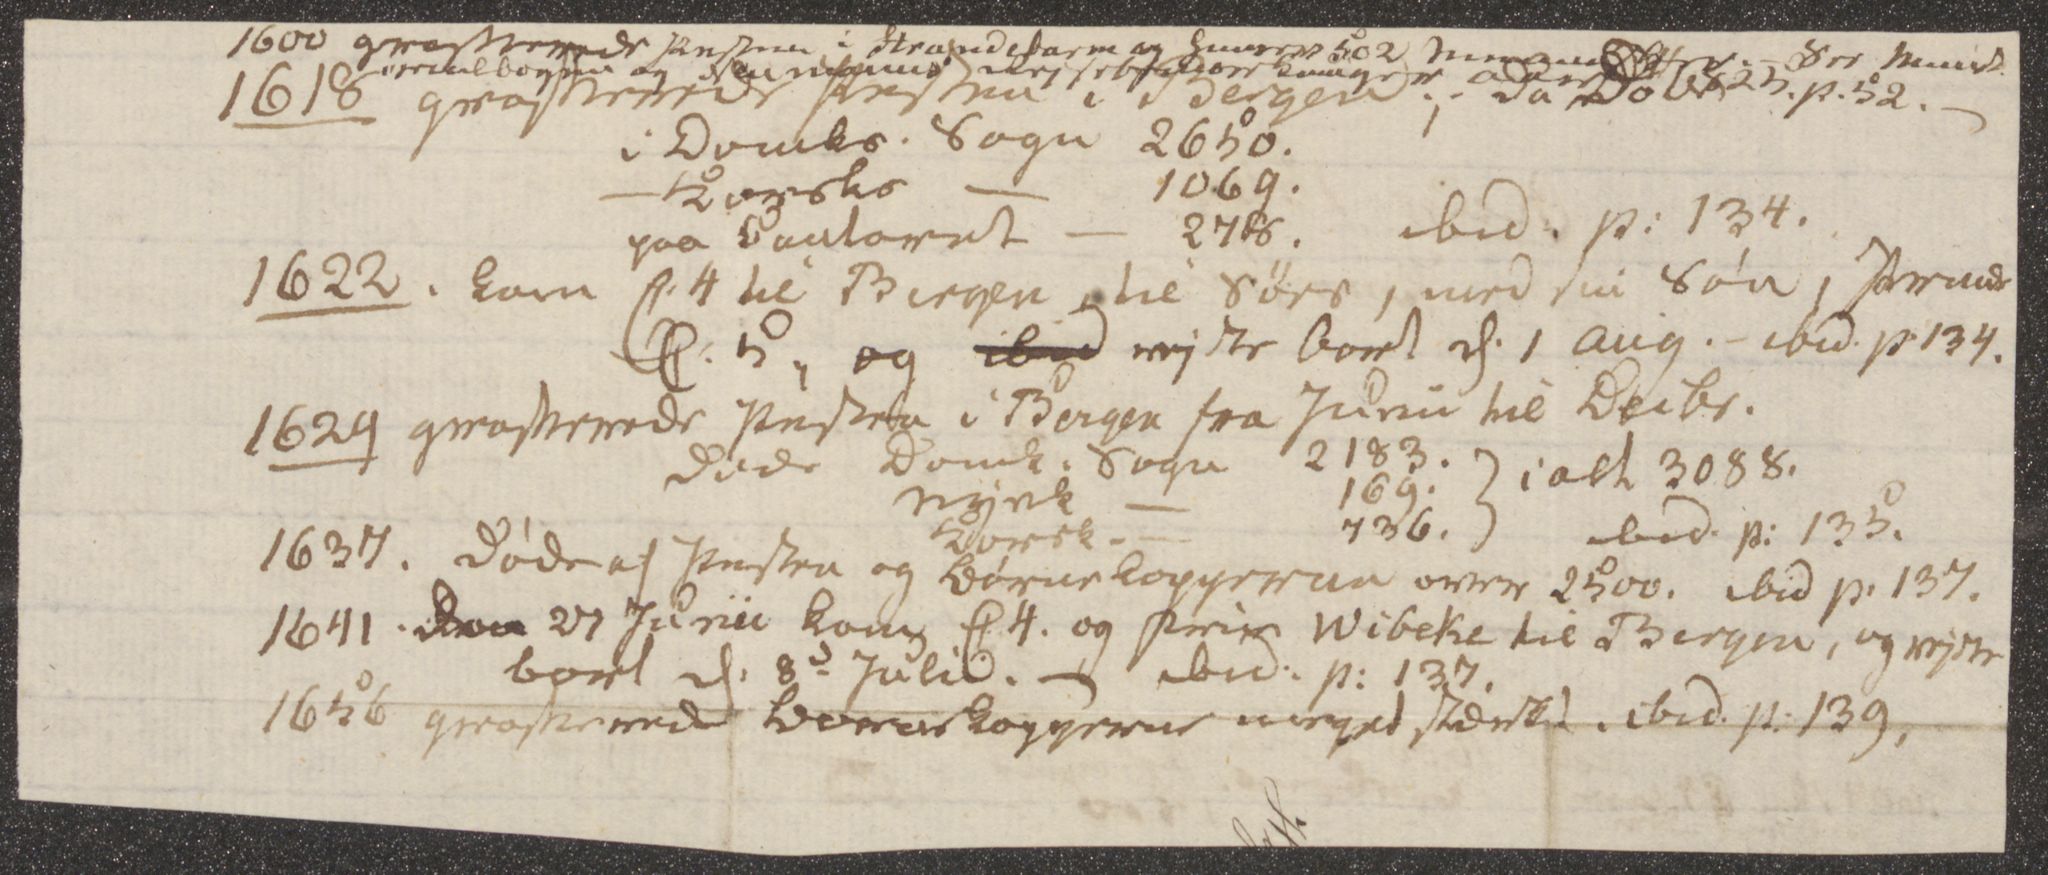 1600 grasserede Pesten i Strandebarm og 502 Mennesker. See Minist.
og
1618 grasserede Pesten i Bergen, da Døde p. 52.
i Domks. Sogn 2650.
— Korsks — 1069.
paa Contoret — 278. ibid. p: 134.
1622. kom C. 4 til Bergen, til Søes, med sin Søn, Printz
C. 5, og ibid rejste bort d. 1 Aug. - ibid. p. 134.
1629 grasserede Pesten i Bergen fra Junii til Decbr.
døde Domk. Sogn 2183. } i alt 3088.
Nyek — 169.
Korsk. — 736. ibid. p: 135.
1637. døde af Pesten og Børnekopperne over 2500. ibid p. 137.
1641. den 27 Junii kom C 4. og Frue Wibeke til Bergen, og rejste
bort d. 8de Julii. — ibid. p: 137.
1656 grasserede Børnekopperne meget stærkt. ibid. p: 139.